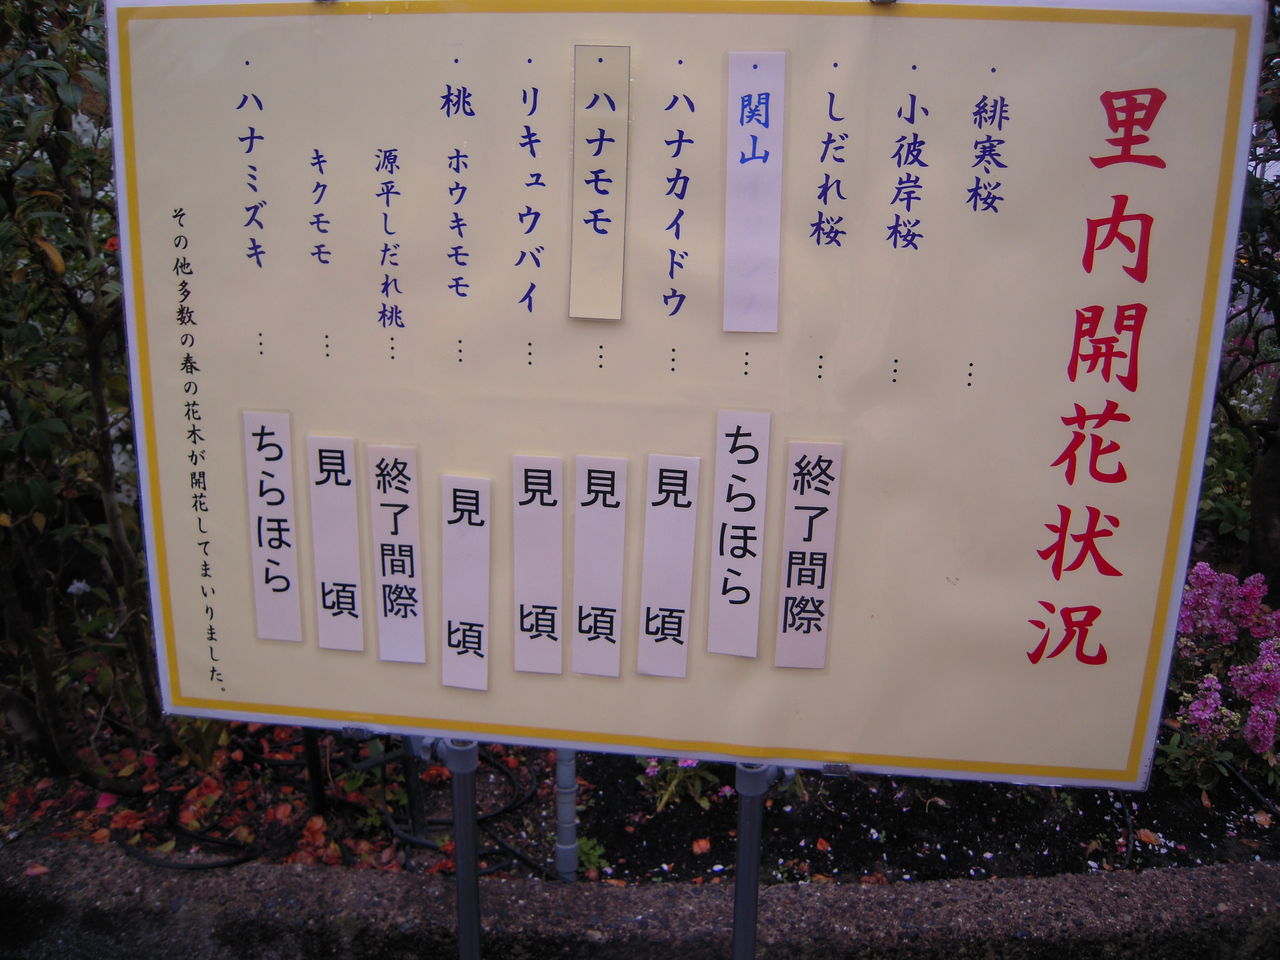 里内開花状況
・緋寒桜 …
・小彼岸桜 …
・しだれ桜 … 終了間際
・関山 … ちらほら
・ハナカイドウ … 見頃
・ハナモモ … 見頃
・リキュウバイ … 見頃
・桃 ホウキモモ … 見頃
源平しだれ桃 … 終了間際
キクモモ … 見頃
・ハナミズキ … ちらほら
その他多数の春の花木が開花してまいりました。